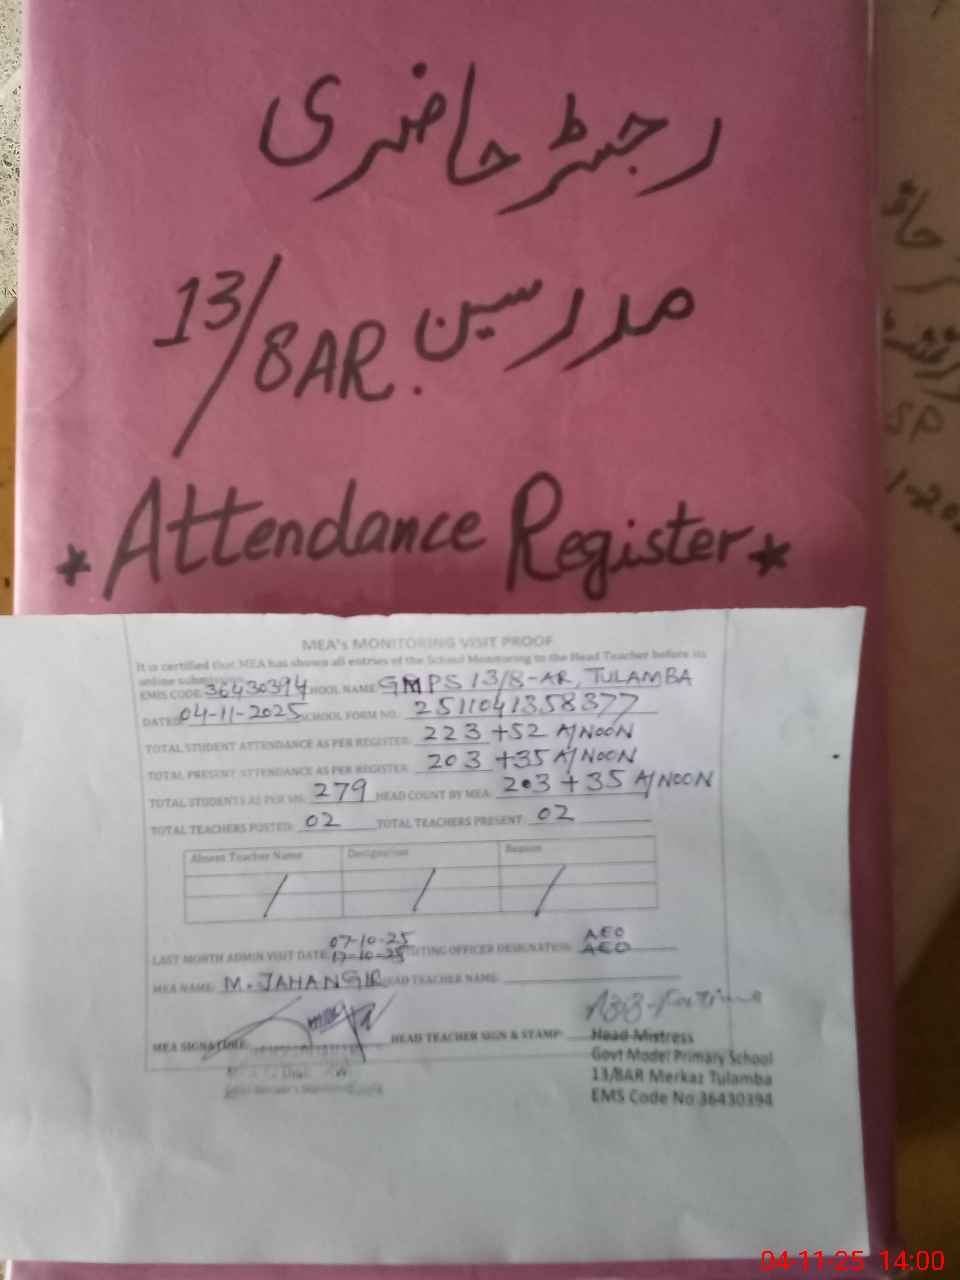 رجسٹر حاضری
مدرسین 13/8AR.
* Attendance Register *
MEA's MONITORING VISIT PROOF
It is certified that MEA has shown all entries of the School Monitoring to the Head Teacher before its
online
EMIS CODE: 36430394 SCHOOL NAME: GMPS 13/8-AR, TULAMBA
DATED: 04-11-2025 SCHOOL FORM NO.: 2511041358377
TOTAL STUDENT ATTENDANCE AS PER REGISTER: 223 +52 A/NOON
TOTAL PRESENT ATTENDANCE AS PER REGISTER: 203 +35 A/NOON
TOTAL STUDENTS AS PER SIS: 279 HEAD COUNT BY MEA: 203 + 35 A/NOON
TOTAL TEACHERS POSTED: 02 TOTAL TEACHERS PRESENT: 02
Absent Teacher Name Designation Reason
/ / /
07-10-25 AEO
LAST MONTH ADMIN VISIT DATE: 17-10-25 VISITING OFFICER DESIGNATION: AEO
MEA NAME: M. JAHANGIR HEAD TEACHER NAME:
MEA SIGNATURE: HEAD TEACHER SIGN & STAMP:
Head Mistress
Govt Model Primary School
13/8AR Merkaz Tulamba
EMS Code No 36430394
04-11-25 14:00